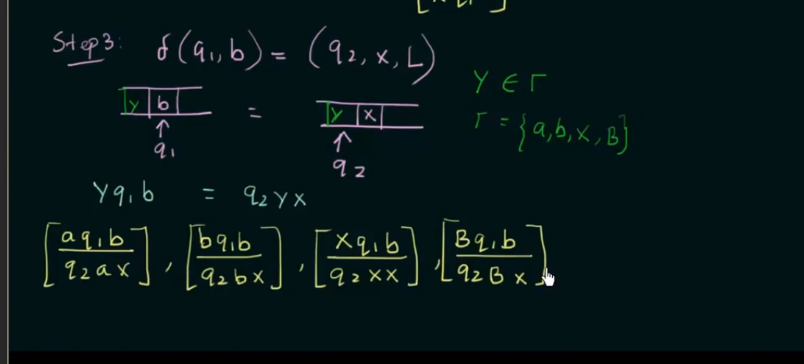 Step3: δ(q₁,b) = (q₂,x,L)
y b = y x
q₁ q₂
Y ∈ Γ
Γ = {a,b,x,B}
Yq₁b = q₂yx
[aq₁b/q₂ax], [bq₁b/q₂bx], [xq₁b/q₂xx], [Bq₁b/q₂Bx]